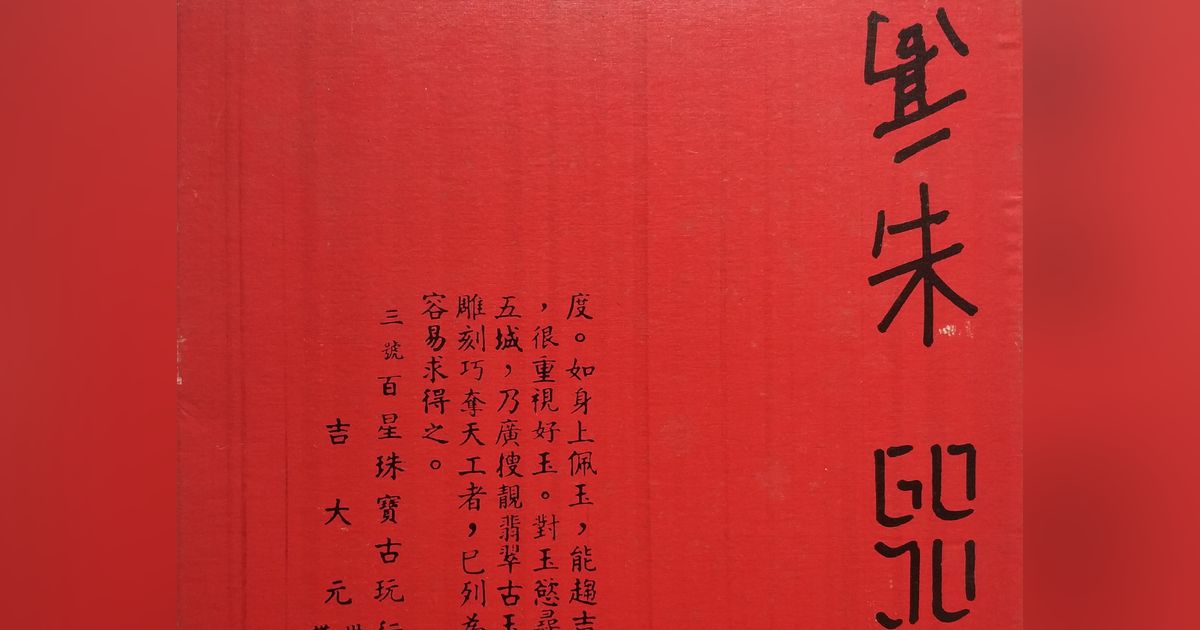 朱
度。如身上佩玉，能趨吉
，很重視好玉。對玉慾尋
五城，乃廣搜靚翡翠古玉
雕刻巧奪天工者，已列為
容易求得之。
三號百星珠寶古玩行
吉大元